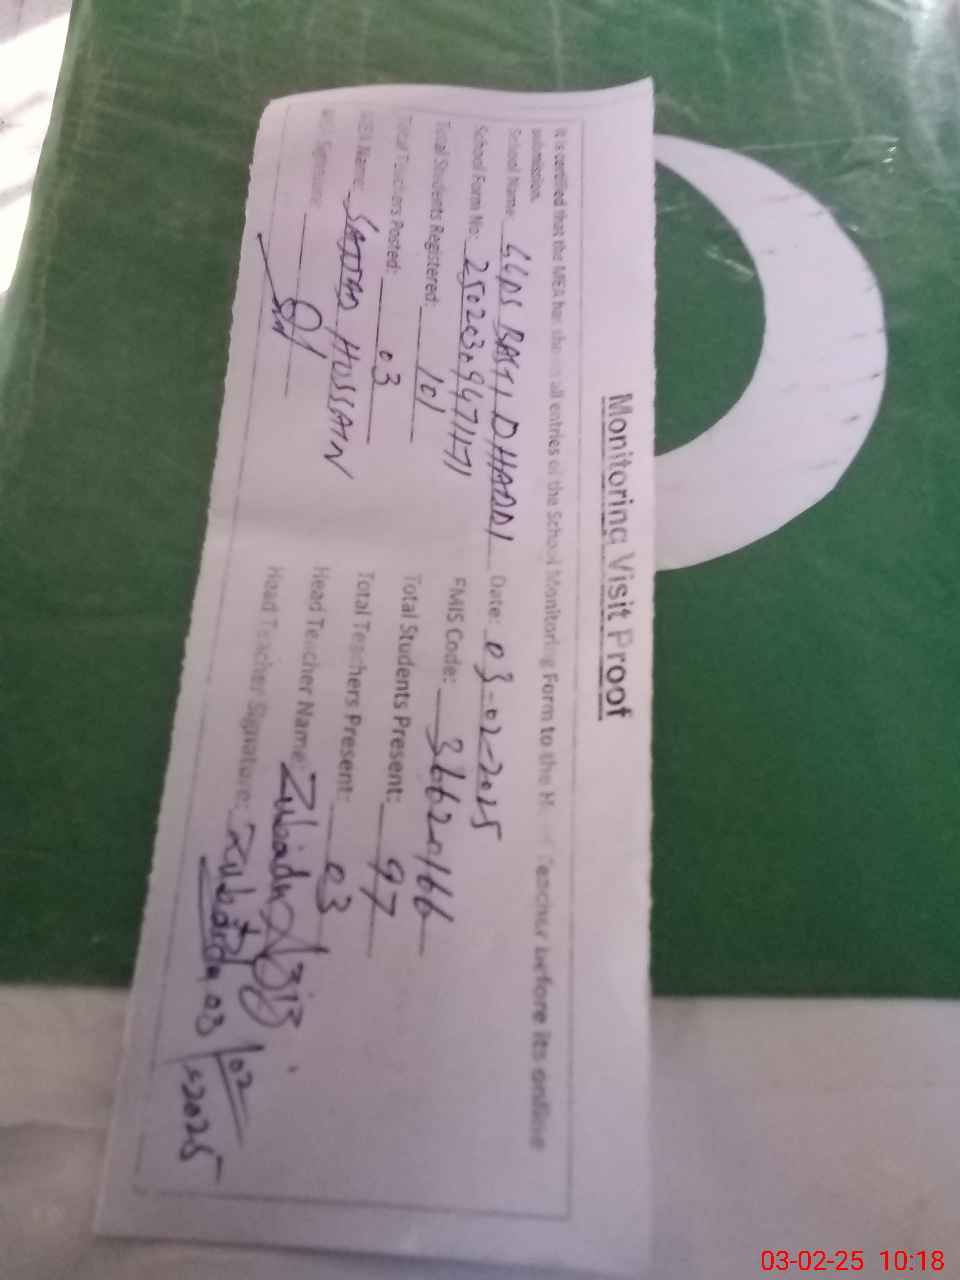 Monitoring Visit Proof
It is certified that the MEA has shown all entries of the School Monitoring Form to the Head Teacher before its online
submission.
School Name: GGPS BASTI DHADDI Date: 03-02-2025
School Form No: EMIS Code: 36620166
Total Students Registered: 101 Total Students Present: 97
Total Teachers Posted: 03 Total Teachers Present: 03
MEA Name: SAJJAD HUSSAIN Head Teacher Name: Zubaida Aziz
MEA Signature: Head Teacher Signature: Zubaida 03/02/2025
03-02-25 10:18